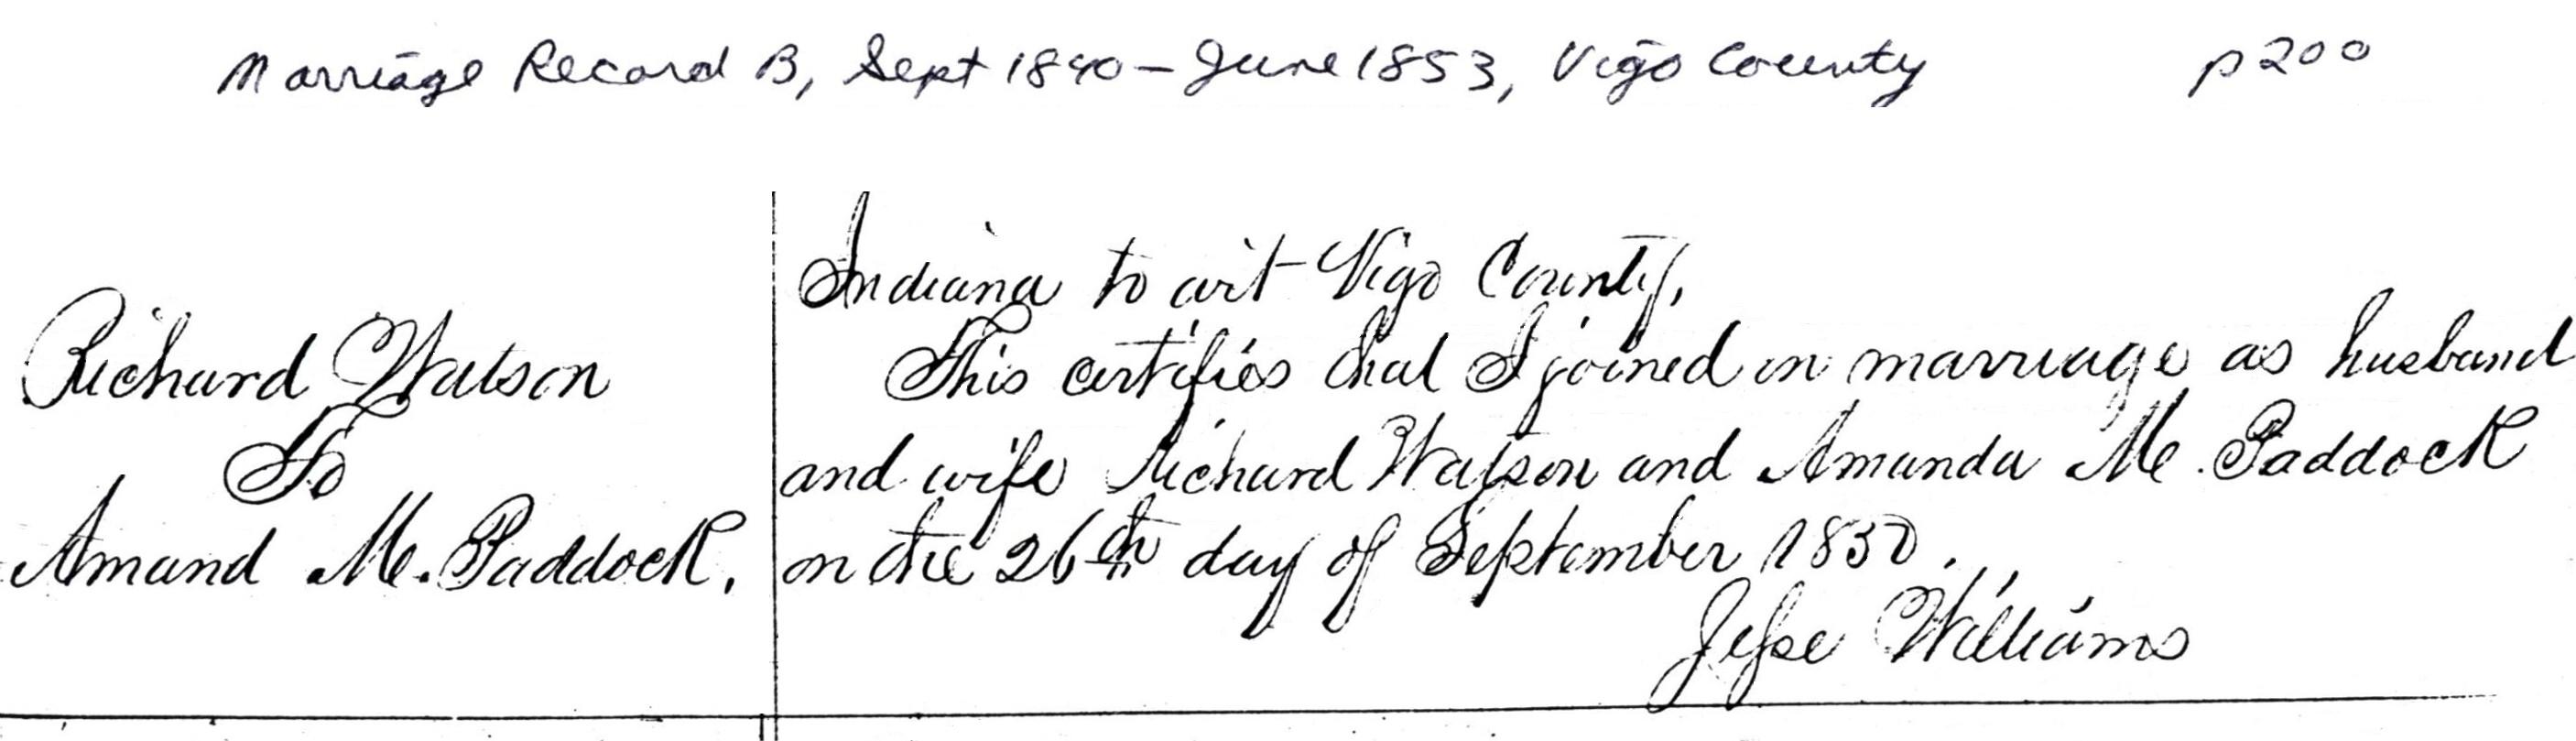 Marriage Record B, Sept 1840 - June 1853, Vigo County p200
Indiana to wit Vigo County,
Richard Watson
To
Amand M. Paddock.
This certifies that I joined in marriage as husband
and wife Richard Watson and Amanda M. Paddock
on the 26th day of September 1850.
Jesse Williams